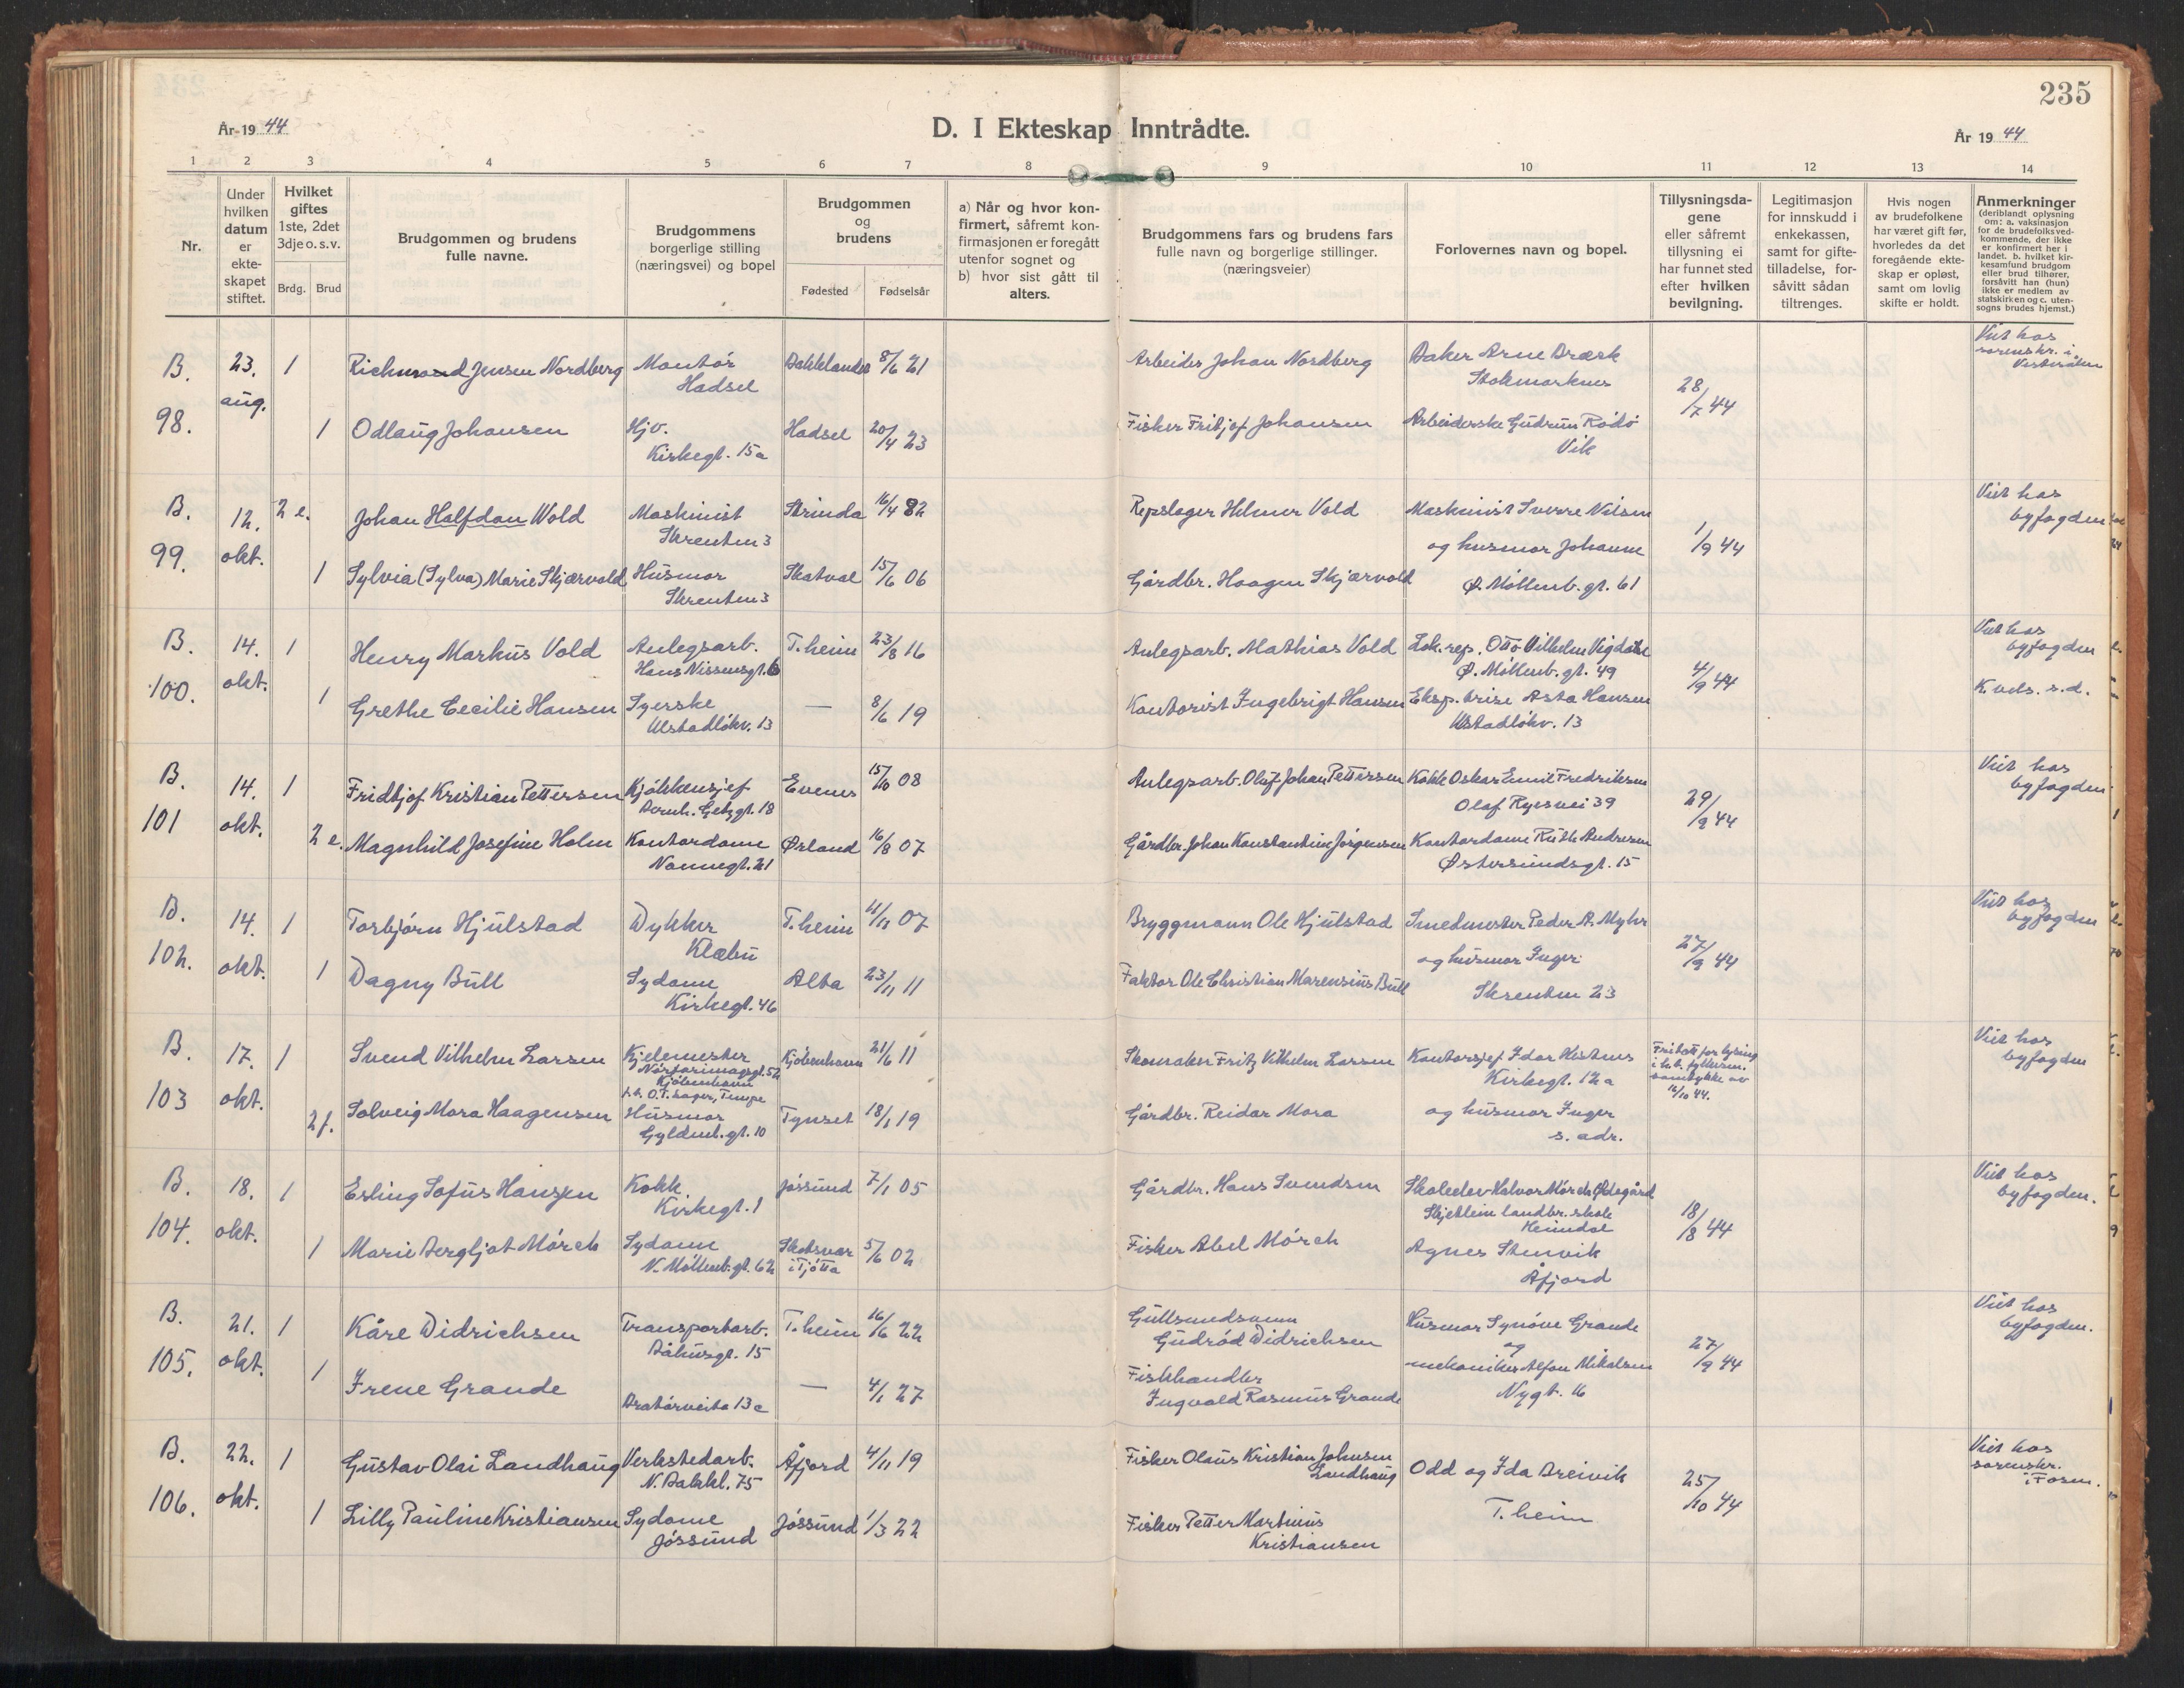 235
År 19 44
D. I Ekteskap Inntrådte.
År 19 44
1 2 3 4 5 6 7 8 9 10 11 12 13 14
Nr.
Under hvilken datum er ekteskapet stiftet.
Hvilket giftes 1ste, 2det 3dje o.s.v.
Brdg. Brud
Brudgommen og brudens fulle navne.
Brudgommens borgerlige stilling (næringsvei) og bopel
Brudgommen og brudens
Fødested Fødselsår
a) Når og hvor konfirmert, såfremt konfirmasjonen er foregått utenfor sognet og
b) hvor sist gått til alters.
Brudgommens fars og brudens fars fulle navn og borgerlige stillinger. (næringsveier)
Forlovernes navn og bopel.
Tillysningsdagene eller såfremt tillysning ei har funnet sted efter hvilken bevilgning.
Legitimasjon for innskudd i enkekassen, samt for giftetilladelse, forsåvitt sådan tiltrenges.
Hvis nogen av brudefolkene har været gift før, hvorledes da det foregående ekteskap er opløst, samt om lovlig skifte er holdt.
Anmerkninger (deriblandt oplysning om: a. vaksinasjon for de brudefolks vedkommende, der ikke er konfirmert her i landet. b. hvilket kirkesamfund brudgom eller brud tilhører, forsåvitt han (hun) ikke er medlem av statskirken og c. utensogns brudes hjemst.)
B. 23. 1 Richmond Jensen Nordberg Montør Bakklandet 8/6 21 Arbeider Johan Nordberg Baker Arne Bræck Viet hos
aug. Hadsel Stokmarknes 28/7 44 sorenskr. i
Vesterålen
98. 1 Odlaug Johansen Hjv. Hadsel 20/4 23 Fisker Fritjof Johansen Arbeiderske Gudrun Rødø
Kirkegt. 15a Vik
B. 12. 2 e. Johan Halfdan Wold Maskinist Strinda 16/4 82 Repslager Helmer Vold Maskinist Sverre Nilsen Viet hos
Skrenten 3 og husmor Johanne 1/9 44 byfogden
99. okt. 1 Sylvia (Sylva) Marie Skjærvold Husmor Skatval 15/6 06 Gårdbr. Haagen Skjærvold Ø. Møllenb. gt. 61
Skrenten 3
B. 14. 1 Henry Markus Vold Anlegsarb. T.heim 23/8 16 Anlegsarb. Mathias Vold Lok. rep. Otto Vilhelm Vigdahl Viet hos
Hans Nissensgt. 6 Ø. Møllenb. gt. 49 4/9 44 byfogden
100. okt. 1 Grethe Cecilie Hansen Syerske — 8/6 19 Kontorist Ingebrigt Hansen Eksp. Asta Hansen K. vels. s.d.
Ulstadløkv. 13 Ulstadløkv. 13
B. 14. 1 Fridtjof Kristian Pettersen Kjøkkensjef Evenes 15/10 08 Anlegsarb. Olaf Johan Pettersen Kokk Oskar Emil Fredriksen Viet hos
Bernh. Getzgt. 18 Olaf Ryesvei 39 29/9 44 byfogden
101 okt. 2 e. Magnhild Josefine Holm Kontordame Ørland 16/8 07 Gårdbr. Johan Konstantin Jørgensen Kontordame Ruth Andresen
Nonnegt. 21 Østersundsgt. 15
B. 14. 1 Torbjørn Hjulstad Dykker T.heim 4/11 07 Bryggmann Ole Hjulstad Smedmester Peder A. Myhr Viet hos
Klæbu og husmor Inger 27/9 44 byfogden
102. okt. 1 Dagny Bull Sydame Alta 23/11 11 Faktor Ole Christian Marensius Bull Skrenten 23
Kirkegt. 46
B. 17. 1 Svend Vilhelm Larsen Kjelemester Kjøbenhavn 21/6 11 Skomaker Fritz Vilhelm Larsen Kontorsjef Idar Hestnes Fritatt for lysing Viet hos
Nørfarimagsgt. 52 Kjøbenhavn Kirkegt. 12a i h.t. fylkesm. byfogden
t.h. O.T. lager, Tempe samtykke av 16/10 44.
103 okt. 2 f. Solveig Mora Haagensen Husmor Tynset 18/1 19 Gårdbr. Reidar Mora og husmor Inger
Gyldenl. gt. 10 s. adr.
B. 18. 1 Erling Sofus Hansen Kokk Jøssund 7/1 05 Gårdbr. Hans Svendsen Skoleelev Halvor Mørch Ødegård Viet hos
Kirkegt. 1 Skjetlein landbr. skole Heimdal 18/8 44 byfogden.
104. okt. 1 Marie Bergljot Mørch Sydame Skotsvær i Tjøtta 5/6 02 Fisker Abel Mørch Agnes Stenvik
N. Møllenb. gt. 62 Åfjord
B. 21. 1 Kåre Didrichsen Transportarb. T.heim 16/6 22 Gullsmedsvenn Husmor Synøve Grande Viet hos
Båhusgt. 15 Gudrød Didrichsen og 27/9 44 byfogden.
105. okt. 1 Irene Grande — 4/1 27 Fiskhandler mekaniker Alfon Mikalsen
Bratørveita 13c Ingvald Rasmus Grande Nygt. 16
B. 22. 1 Gustav Olai Landhaug Verkstedarb. Åfjord 4/11 19 Fisker Olaus Kristian Johnsen Landhaug Odd og Ida Breivik Viet hos
N. Bakkl. 75 T.heim 25/10 44 sorenskr. i Fosen.
106. okt. 1 Lilly Pauline Kristiansen Sydame Jøssund 1/3 22 Fisker Petter Martinius
Jøssund Kristiansen